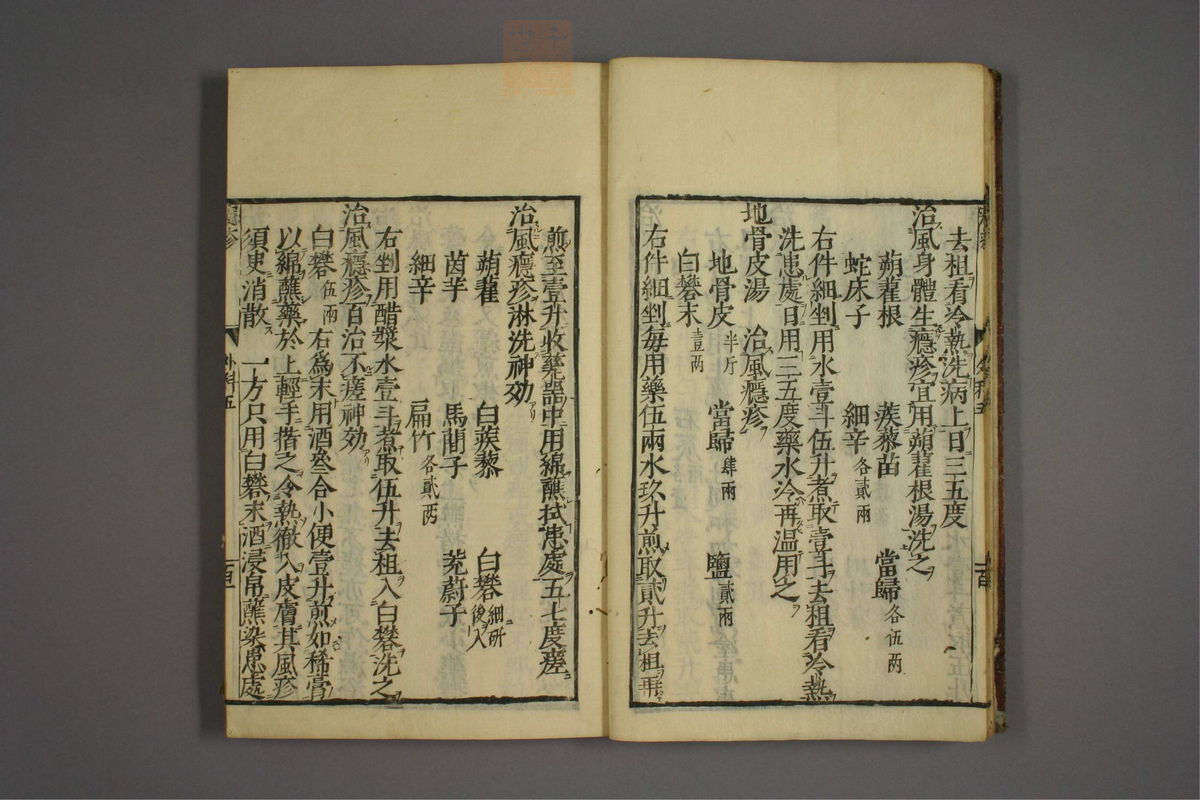 去柤看冷熱洗病上日三五度
治風身體生癮疹宜用蒴藋根湯洗之
蒴藋根 蒺藜苗 當歸各伍兩
蛇床子 細辛各貳兩
右件細剉用水壹斗伍升煮取壹斗去柤看冷熱
洗患處日用三五度藥水冷再温用之
地骨皮湯 治風癮疹
地骨皮半斤 當歸肆兩 鹽貳兩
白礬末壹兩
右件細剉每用藥伍兩水玖升煎取貳升去柤再
煎至壹升收甆器中用綿蘸拭患處五七度瘥
治風癮疹淋洗神効
蒴藋 白蒺藜 白礬細研後入
茵芋 馬藺子 茺蔚子
細辛 扁竹各貳兩
右剉用醋漿水壹斗煮取伍升去柤入白礬洗之
治風癮疹百治不瘥神効
白礬伍兩 右爲末用酒叁合小便壹升煎如稀膏
以綿蘸藥於上輕手揩之令熱徹入皮膚其風疹
須臾消散 一方只用白礬末酒浸帛蘸染患處
癮疹 外科五 一百